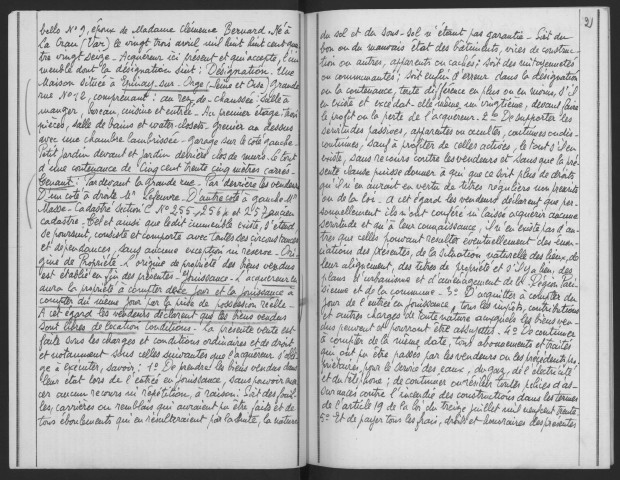 belle N° 9, époux de Madame Clémence Bernard. Né à
la Crau (Var) le vingt trois avril mil huit cent qua
tre vingt seize. Acquéreur ici présent et qui accepte, l'im
meuble dont la désignation suit: Désignation. Une
Maison située à Epinay-sur-Orge (Seine et Oise) Grande
rue N° 72, comprenant: au rez de chaussée: Salle à
manger, bureau, cuisine et entrée. Au premier étage: trois
pièces, salle de bains et water-closets. Grenier au dessus
avec une chambre lambrissée. Garage sur le côté gauche.
Petit jardin devant et jardin derrière clos de murs. Le tout
d'une contenance de Cinq cent trente cinq mètres carrés.
Tenant: Par devant la grande rue. Par derrière les vendeurs
D'un côté à droite Mr Lefeuvre. D'autre côté à gauche Mr
Masse. Cadastré Section C N° 255, 256 p et 257 p ancien
cadastre. Tel et ainsi que ledit immeuble existe, s'étend,
se poursuit, consiste et comporte avec toutes ses circonstances
et dépendances, sans aucune exception ni réserve. Ori
gine de Propriété. L'origine de propriété des biens vendus
est établie en fin des présentes. Jouissance. L'acquéreur
aura la propriété à compter de ce jour et la jouissance à
compter du même jour par la prise de possession réelle.
A cet égard les vendeurs déclarent que les biens vendus
sont libres de location. Conditions. La présente vente est
faite sous les charges et conditions ordinaires et de droit
et notamment sous celles suivantes que l'acquéreur s'obli
ge à exécuter, savoir: 1° De prendre les biens vendus dans
leur état lors de l'entrée en jouissance, sans pouvoir exer
cer aucun recours ni répétition, à raison: Soit des fouil
les, carrières ou remblais qui auraient pu être faits et de
tous éboulements qui en résulteraient par la suite, la nature
21
du sol et du sous-sol n'étant pas garantie. Soit du
bon ou du mauvais état des bâtiments, vices de construc
tion ou autres, apparents ou cachés; soit des mitoyennetés
ou communautés; soit enfin d'erreur dans la désignation
ou la contenance, toute différence en plus ou en moins, s'il
en existe et excédat-elle même un vingtième, devant faire
le profit ou la perte de l'acquéreur. 2° De supporter les
servitudes passives, apparentes ou occultes, continues ou dis
continues, sauf à profiter de celles actives, le tout s'il en
existe, sans recours contre les vendeurs et sans que la pré
sente clause puisse donner à qui que ce soit plus de droits
qu'il n'en aurait en vertu de titres réguliers non prescrits
ou de la loi. A cet égard les vendeurs déclarent que per
sonnellement ils n'ont conféré ni laissé acquérir aucune
servitude et qu'à leur connaissance, il n'en existe pas d'au
tres que celles pouvant résulter éventuellement des énon
ciations des présentes, de la situation naturelle des lieux, de
leur alignement, des titres de propriété et s'il y a lieu, des
plans d'urbanisme et d'aménagement de la Région Pari
sienne et de la commune. 3° D'acquitter à compter du
jour de l'entrée en jouissance, tous les impôts, contributions
et autres charges de toute nature auxquels les biens ven
dus peuvent et pourront être assujettis. 4° De continuer
à compter de la même date, tous abonnements et traités
qui ont pu être passés par les vendeurs ou les précédents pro
priétaires, pour le service des eaux, du gaz, de l'électricité
et du téléphone; de continuer ou résilier toutes polices d'as
surances contre l'incendie des constructions dans les termes
de l'article 19 de la loi du treize juillet mil neuf cent trente.
5° Et de payer tous les frais, droits et honoraires des présentes